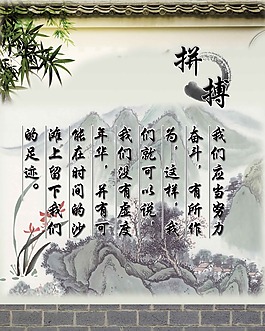 拼搏
我们应当努力
奋斗，有所作
为，这样，我
们就可以说，
我们没有虚度
年华，并有可
能在时间的沙
滩上留下我们
的足迹。